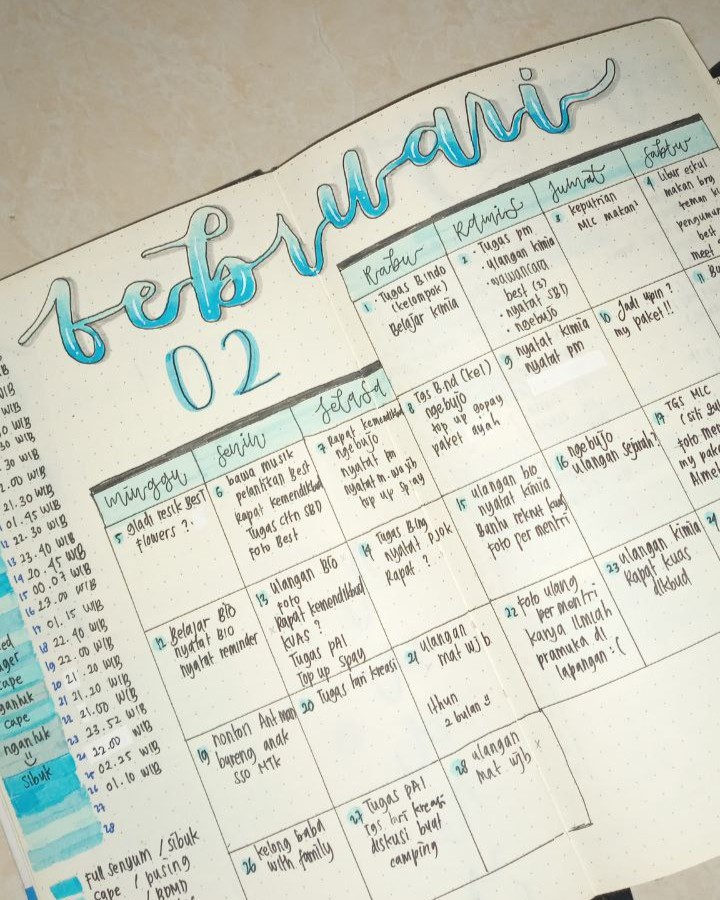 februari
02
minggu
senin
selasa
Rabu
Kamis
Jumat
Sabtu
1 · Tugas B indo
(kelompok)
Belajar kimia
2 · Tugas pm
· ulangan kimia
· wawancara
best (3)
· nyatat SBD
· ngebujo
3 keputrian
MLC makan²
4 libur eskul
makan brg
teman
best
meet
5 gladi resik BEST
flowers ?
6 bawa musik
pelantikan Best
Rapat kemendikbud
Tugas ctn SBD
Foto Best
7 Rapat kemendikbud
ngebujo
nyatat m. wajib
top up spay
8 Tgs B.nd (kel)
ngebujo
top up gopay
paket
9 nyatat kimia
nyatat pm
10 Jadi upin ?
my paket !!
11
12 Belajar BIO
nyatat BIO
nyatat reminder
13 ulangan BIO
foto
Rapat kemendikbud
KUAS ?
Tugas PAI
Top up Spay
14 Tugas B.ing
nyatat PJOK
Rapat ?
15 ulangan bio
nyatat kimia
Bantu
Foto per mentri
16 ngebujo
ulangan sejarah?
17 TGS MLC
foto
my
19 nonton Ant man
bareng anak
SSO MTK
20 Tugas tari kreasi
21 ulangan
mat wjb
1 thun
2 bulan
22 Foto ulang
per mentri
karya ilmiah
pramuka di
lapangan :(
23 ulangan kimia
Rapat kuas
dikbud
24
26 kelong baba
with family
27 Tugas PAI
Tgs tari kreasi
diskusi buat
camping
28 ulangan
mat wjb
WIB
WIB
WIB
WIB
30 WIB
30 WIB
.00 WIB
21.30 WIB
01.45 WIB
12 22.30 WIB
13 23.40 WIB
14 20.45 WIB
15 00.07 WIB
16 23.00 WIB
17 01.15 WIB
18 22.40 WIB
19 22.00 WIB
20 21.20 WIB
21 21.20 WIB
22 21.00 WIB
23 23.52 WIB
24 22.00 WIB
25 02.25 WIB
26 01.10 WIB
27
28
cape
ngantuk
cape
ngantuk
sibuk
Full senyum / sibuk
cape / pusing